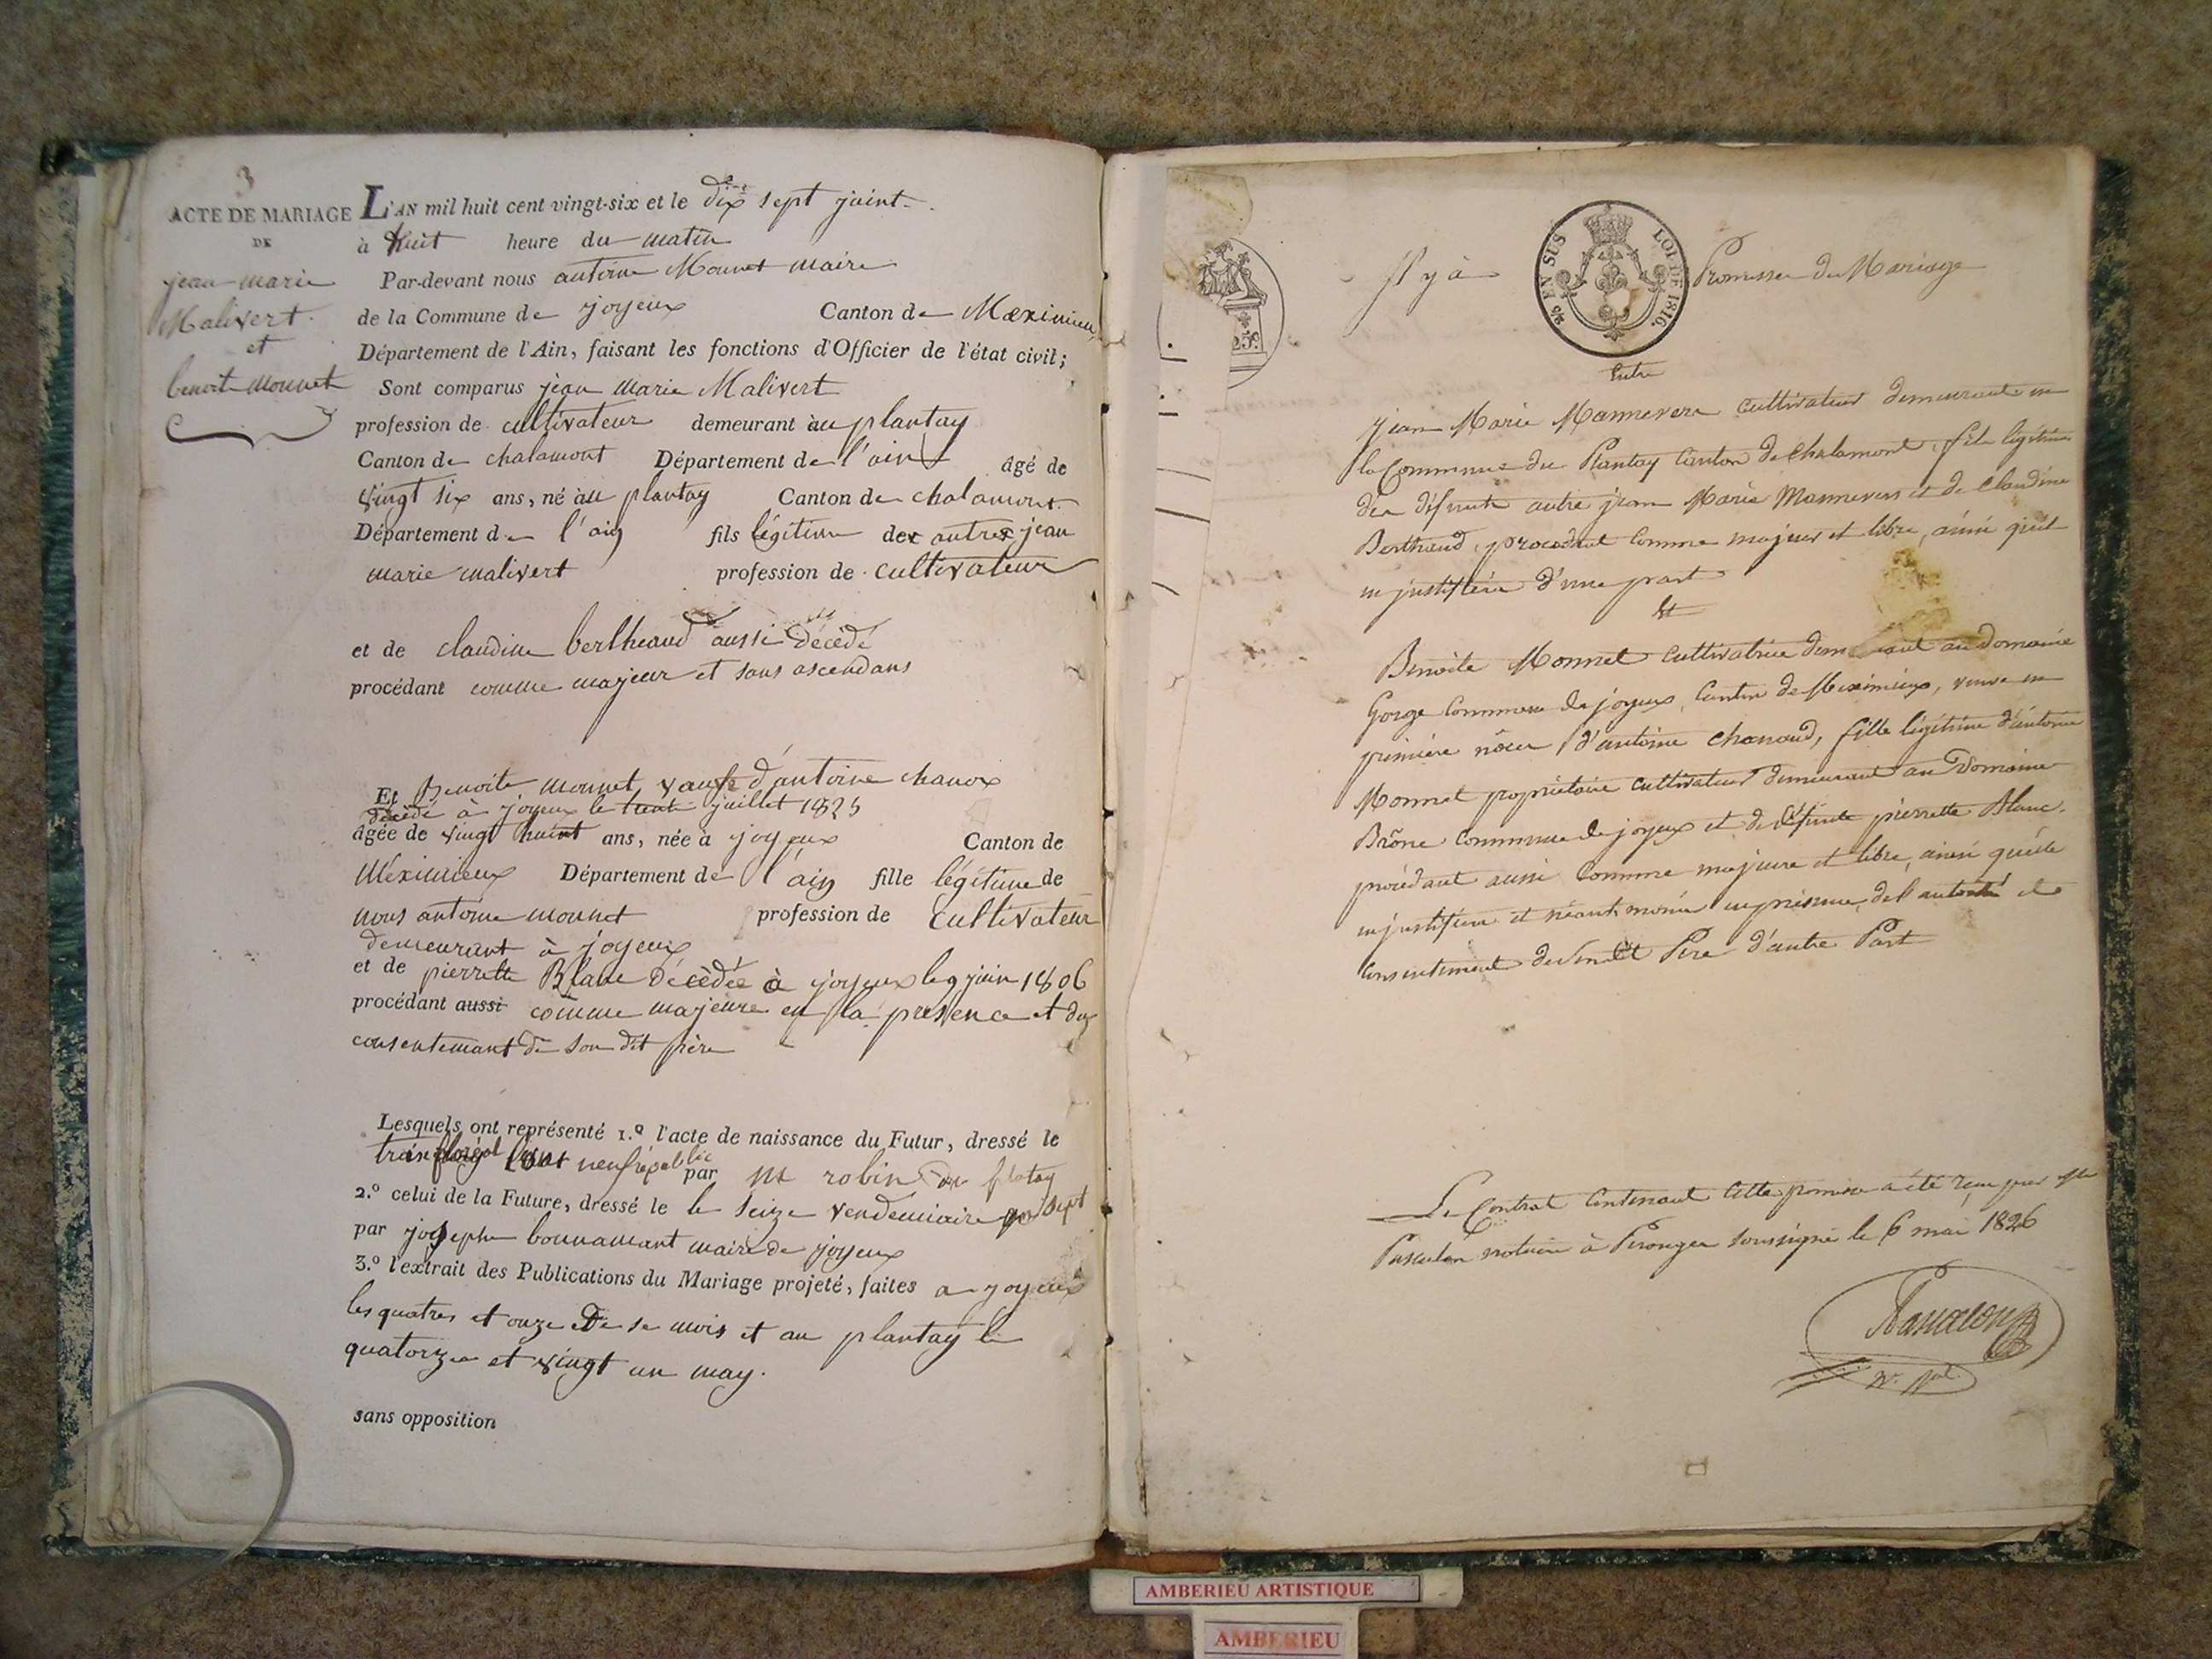 3
ACTE DE MARIAGE
DE
jean marie
Malivert
et
benoite monnet
L'AN mil huit cent vingt-six et le dix sept juint
à huit heure du matin
Par-devant nous antoine Monnet maire
de la Commune de joyeux Canton de Mæximieu
Département de l'Ain, faisant les fonctions d'Officier de l'état civil;
Sont comparus jean marie Malivert
profession de cultivateur demeurant au plantay
Canton de chalamont Département de l'ain âgé de
vingt six ans, né au plantay Canton de chalamont
Département de l'ain fils légitime de autre jean
marie malivert profession de cultivateur
et de claudine bertheaud aussi décédé
procédant comme majeur et sans ascendans
Et Benoite monnet vauve d'antoine chanox
décédé à joyeux le juillet 1825
agée de vingt huint ans, née à joyeux Canton de
Méximieux Département de l'ain fille légitime de
nous antoine monnet profession de cultivateur
demeurant à joyeux
et de pierrette Blanc décèdée à joyeux le 9 juin 1806
procédant aussi comme majeure en la presence et du
consentemant de son dit père
Lesquels ont représenté 1.º l'acte de naissance du Futur, dressé le
trois floréal neuf républic par M robin du platay
2.º celui de la Future, dressé le le seize vendemiaire sept
par josephe bonnamant maire de joyeux
3.º l'extrait des Publications du Mariage projeté, faites a joyeux
les quatres et onze de se mois et au plantay le
quatorze et vingt un may.
sans opposition
25c.
Il y à Promesse de Mariage
EN SUS LOI DE 1816.
Entre
Jean Marie Mannevere cultivateur demeurant en
la Commune du Plantay canton de Chalamont, fils légitime
de défunts autre jean Marie Mannevers et de Claudine
Berthaud, procedant comme majeur et libre, ainsi qu'il
en justifiera d'une part
Et
Benoite Monnet cultivatrice demeurant au domaine
Gorge Commune de joyeux, Canton de Meximieux, veuve en
première nôces d'antoine Chanaud, fille légitime d'antoine
Monnet propriétaire cultivateur demeurant au Domaine
Brône Commune de joyeux et de défunte pierrette Blanc.
procédant aussi comme majeure et libre, ainsi qu'elle
en justifiera et néantmoins en présence, de l'autorité et
consentement de son dit Père d'autre Part
Le Contrat contenant cette promesse a été reçu par Me
Pascalon notaire à Perouges soussigné le 6 mai 1826
Pascalon
AMBERIEU ARTISTIQUE
AMBERIEU